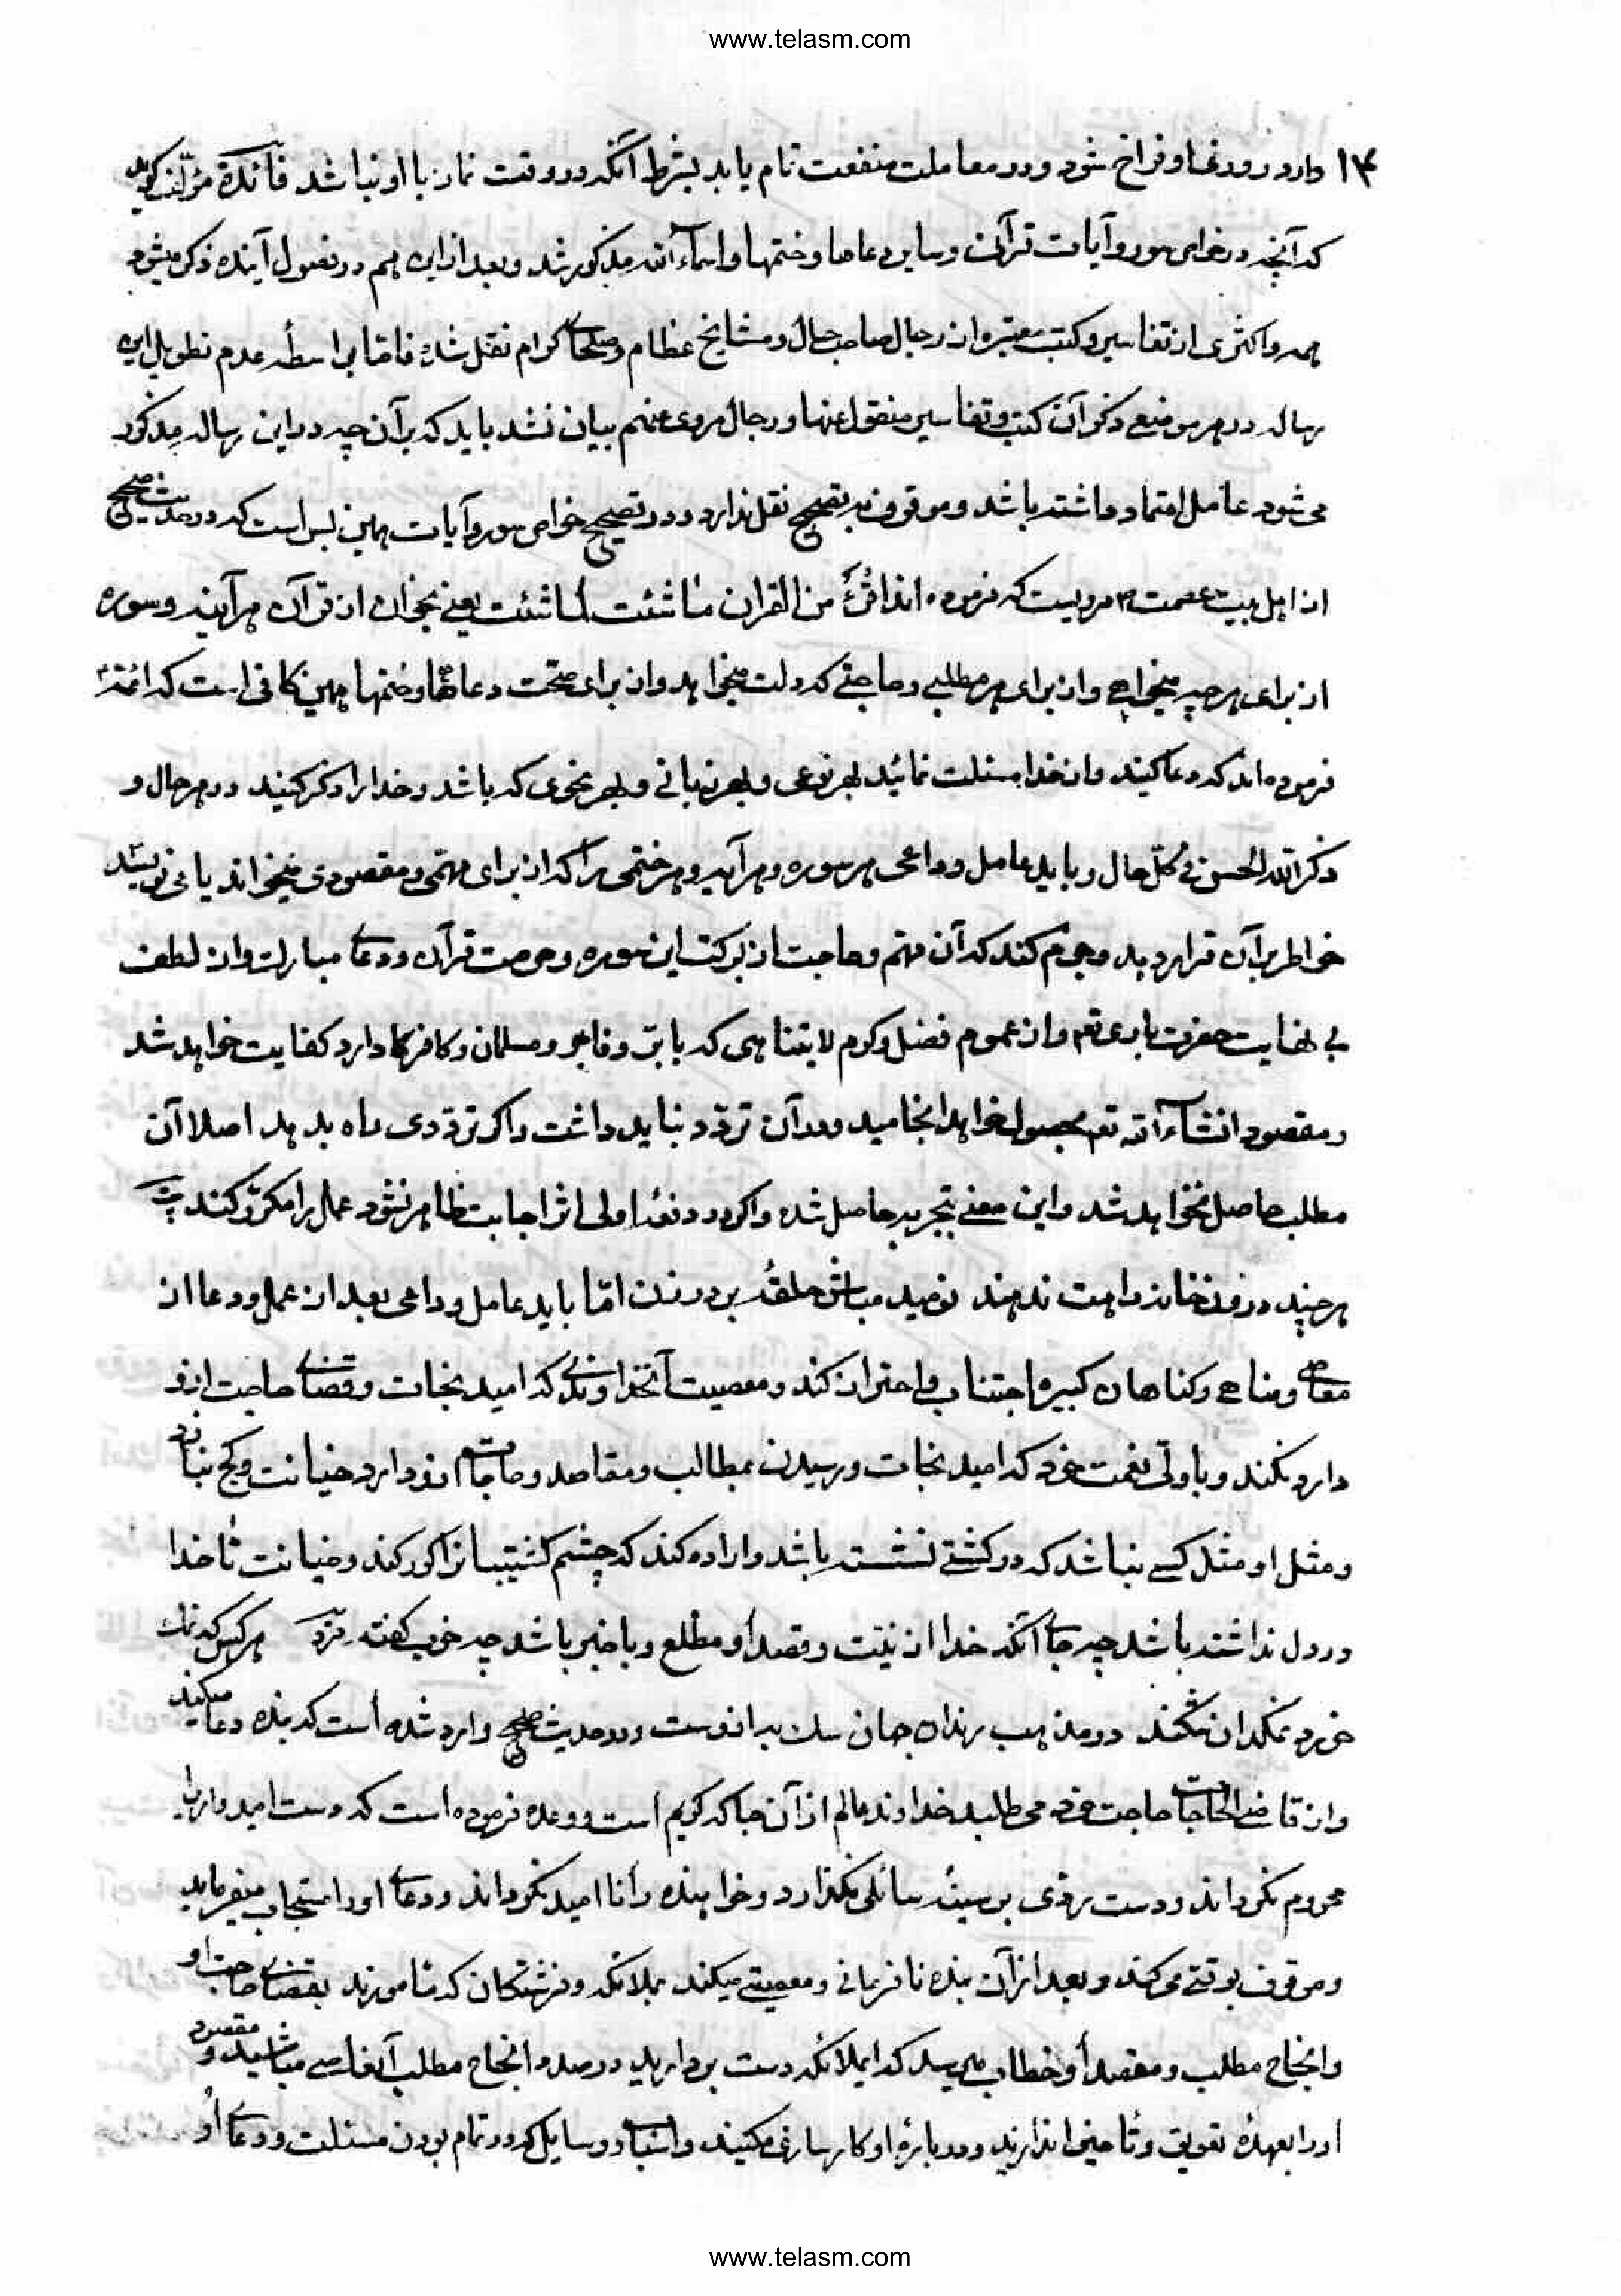 www.telasm.com
۱۴ دارد روزی او فراخ شود و در معاملت منفعت تام یابد بشرط آنکه در وقت نماز با او نباشد فائدة مؤلف گوید
که آنچه در خواص سور و آیات قرآن و سایر دعاها و ختمها و اسماء الله مذکور شد و بعد از این هم در فصول آینده ذکر میشود
همه و اکثری از تفاسیر و کتب معتبره از رجال صاحب حال و مشایخ عظام و صلحای کرام نقل شده فامّا بواسطه عدم تطویل این
رساله در هر موضع ذکر آن کتب و تفاسیر منقول عنها و رجال مروی عنهم بیان نشد باید که بر آن چه در این رساله مذکور
می شود عامل اعتماد داشته باشد و موقوف بر تصحیح نقل ندارد و در تصحیح خواص سور و آیات همین بس است که در حدیث صحیح
از اهل بیت عصمت مرویست که فرموده اند اقرأ من القران ما شئت لما شئت یعنی بخوان از قرآن هر آیه و سوره
از برای هر چه میخواهی و از برای هر مطلبی و حاجتی که دلت میخواهد و از برای صحت دعاها و ختمها همین کافی است که ائمه
فرموده اند که دعا کنید و از خدا مسئلت نمائید بهر نوعی و بهر زبانی و بهر نحوی که باشد و خدا را ذکر کنید در هر حال و
ذکر الله الحسن فی کل حال و باید عامل و داعی هر سوره و هر آیه و هر ختمی را که از برای مهمّی و مقصودی میخواند یا می نویسد
خواطر بر آن قرار دهد و جزم کند که آن مهم و حاجت از برکت این سوره و حرمت قرآن و دعای مبارک و از لطف
بی نهایت حضرت باری تعم و از عموم فضل و کرم لایتناهی که با برّ و فاجر و مسلمان و کافر کا دارد کفایت خواهد شد
و مقصود انشاء الله تعم بحصول خواهد انجامید و در آن تردّد نباید داشت و اگر تردّدی راه بدهد اصلا آن
مطلب حاصل نخواهد شد و این معنی بتجربه حاصل شده و اگر در دفعهٔ اولی اثر اجابت ظاهر نشود عمل را مکرّر کند بیت
هر چند درون خانه راهت ندهند نومید مباش حلقهٔ بر در زن امّا باید عامل و داعی بعد از عمل و دعا از
معاصی و مناهی و کناهان کبیره اجتناب و احتراز کند و معصیت آنخداوندی که امید نجات و قضای حاجت ازو
دارد نکند و با ولی نعمت خود که امید نجات و رسیدن بمطالب و مقاصد و حاجات ازو دارد خیانت و کج نبازد
و مثل او مثل کسی نباشد که در کشتی نشسته باشد و اراده کند که چشم کشتیبانرا کور کند و خیانت ناخدا
در دل نداشته باشد چه جای آنکه خدا از نیّت و قصد او مطلع و با خبر باشد چه خوب گفته فرد هر کس که نمک
خورد نمکدان شکند در مذهب رندان جهان سک به ازوست و در حدیث صحیح وارد شده است که بنده دعا میکند
و از قاضی الحاجات حاجت خود می طلبد خداوند عالم از آن جا که کریم است و وعده فرموده است که دست امیدواریرا
محروم نکرداند و دست ردّی بر سینهٔ سائلی نگذارد و خواهنده را ناامید نکرداند و دعای او را مستجاب میفرماید
و موقوف بوقتی می کند و بعد از آن بنده نافرمانی و معصیتی میکند ملائکه و فرشتگان که مامورند بقضای حاجت او
و انجاح مطلب و مقصد او خطاب می رسد که ایملائکه دست بردارید در صدد انجاح مطلب آنعاصی مباشید و مقصود
او را بعهدهٔ تعویق و تأخیر اندازید و در بارهٔ او کارسازی مکنید و اسباب و وسایل که در تمام بودن مسئلت و دعای او
www.telasm.com